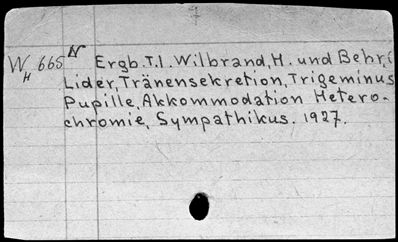 W H 665 N Ergb. T.1. Wilbrand, H. und Behr, C
Lider, Tränensekretion, Trigeminus
Pupille, Akkommodation Hetero-
chromie, Sympathikus. 1927.